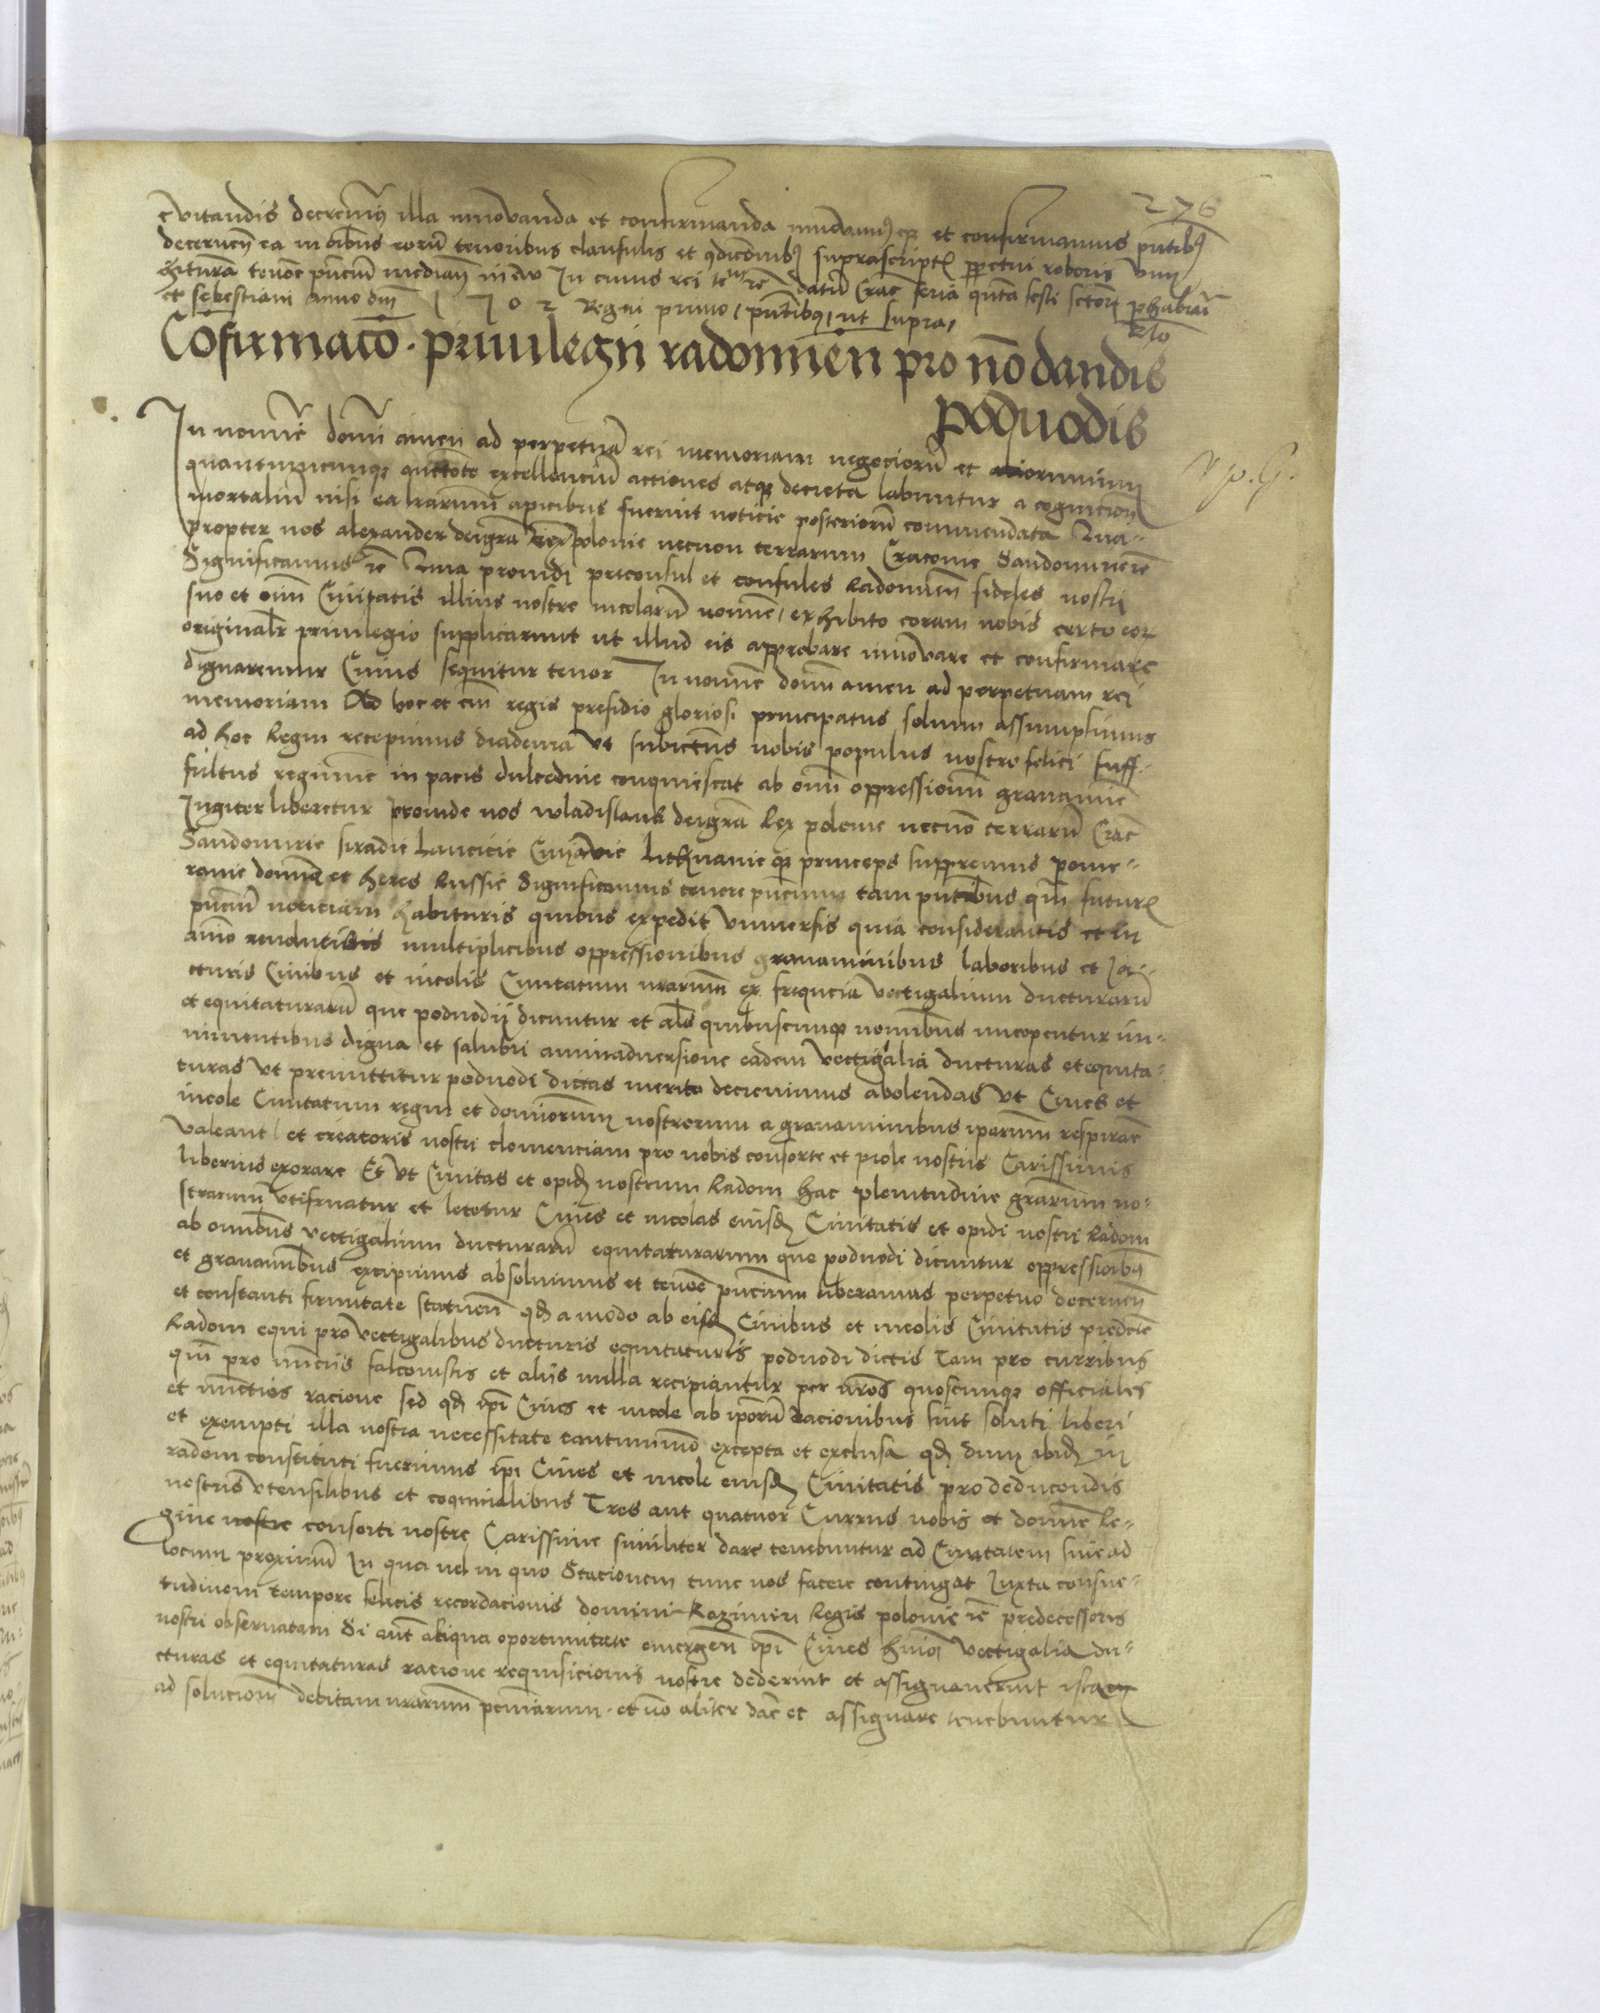 276
evitandis decrevimus illa innovanda et confirmanda et confirmamus pntibus
decernen ea in oibus eorum tenoribus clausulis et condicionibus suprascriptis perpetui roboris vim
habituram tenore pncium mediante In cuius rei datum Crac feria quinta festi sctorum phabiani
et sebestiani anno dni 1 5 0 2 Regni primo, pntibus, ut supra,
Rlo
Cofirmaco privilegii radomien pro no dandis
podvodis
In nomine domini amen ad perpetuam rei memoriam negociorum et
quantumcunque excellencium actiones atque decreta labuntur a cognicione
mortalium nisi ea lrarum apicibus fuerint noticie posteriorum commendata Qua-
propter nos alexander dei gra rex polonie necnon terrarum Cracovie Sandomirie
Significamus Quia providi preconsul et consules Radomien fideles nostri
suo et omni Civitatis illius nostre incolarum nomine, exhibito coram nobis certo eor
originali privilegio supplicarunt ut illud eis approbare innovare et confirmare
dignaremur Cuius sequitur tenor In nomine domini amen ad perpetuam rei
memoriam Ad hoc et eni regis presidio gloriosi principatus solium assumpsimus
ad hoc Regni recepimus diadema ut subiectus nobis populus nostro felici suff-
fultus regimine in pacis dulcedine conquiescat ab omni oppressionum gravamine
Iugiter liberetur proinde nos wladislaus dei gra Rex polonie necno terrarum Crac
Sandomirie siradie Lancicie Cuyavie lithuanieque princeps suppremus pome-
ranie dominus et heres Russie Significamus tenore pncium tam pntibus quam futuris
pncium noticiam habituris quibus expedit universis quia considerantes et in
animo revolventes multiplicibus oppressionibus gravaminibus laboribus et Ia-
cturis Civibus et incolis Civitatum nrarum ex frequencia vectigalium ducturarum
et equitaturarum que podvody dicuntur et als quibuscunque nominibus nuncupentur im-
minentibus digna et salubri animadversione eadem vectigalia ducturas et equita-
turas ut premittitur podvodi dictas merito decrevimus abolendas ut Cives et
incole Civitatum regni et dominiorum nostrorum a gravaminibus iporum respirare
valeant, et creatoris nostri clemenciam pro nobis consorte et prole nostris Carissimis
liberius exorare Et ut Civitas et opidum nostrum Radom hac plenitudine gratiarum no-
strarum utifruatur et letetur Cives et incolas eiusdem Civitatis et opidi nostri Radom
ab omnibus vectigalium ducturarum equitaturarum que podvodi dicuntur oppressionibus
et gravaminibus excipimus absolvimus et tenore pncium liberamus perpetuo decernen
et constanti firmitate statuen quod a modo ab eisdem Civibus et incolis Civitatis predicte
Radom equi pro vectigalibus ducturis equitaturis podvodi dictis Tam pro curribus
quam pro nuncciis falconistis et aliis nulla recipiantur per nros quoscunque officiales
et nunctios racione sed quod ipi Cives et incole ab iporum dacionibus sint soluti liberi
et exempti illa nostra necessitate tantummodo excepta et exclusa quod dum ibidem in
radom constituti fuerimus ipi Cives et incole eiusdem Civitatis pro deducendis
nostris utensilibus et coquinalibus Tres aut quatuor Currus nobis et domine Re-
gine nostre consorti nostre Carissime similiter dare tenebuntur ad Civitatem sive ad
locum proximum In qua vel in quo Stacionem tunc nos facere contingat Iuxta consue-
tudinem tempore felicis recordacionis domini Kazimiri Regis polonie predecessoris
nostri observatam Si aut aliqua oportunitate emergen ipi Cives huiusmodi vectigalia du-
cturas et equitaturas racione requisicionis nostre dederint et assignaverint
ad solucionem debitam nrarum peccuniarum et no aliter dare et assignare tenebuntur